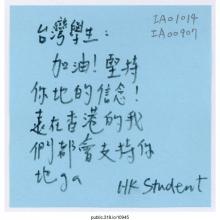 IA01014
IA00907
台灣學生：
加油！堅持
你地的信念！
遠在香港的我
們都會支持你
地ga
HK Student
public.318.io/10945